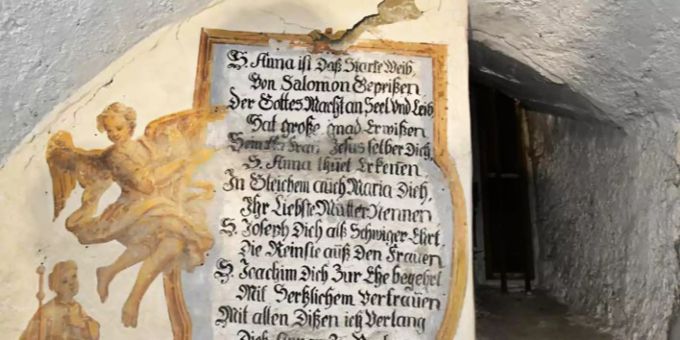 S. Anna ist Daß Starke Weib,
Von Salomon Geprißen
Der Gottes Macht an Seel Vnd Leib
Hat große gnad Erwißen
Jesus selber Dich,
S. Anna thuet Erkenen
In Gleichem auch Maria Dich,
Ihr Liebste Mutter Nennen
S. Joseph Dich alß Schwiger Ehrt
Die Reinste auß Den Frauen
S. Joachim Dich Zur Ehe begehrt
Mit Hertzlichem Vertrauen
Mit allen Dißen ich Verlang
Dich